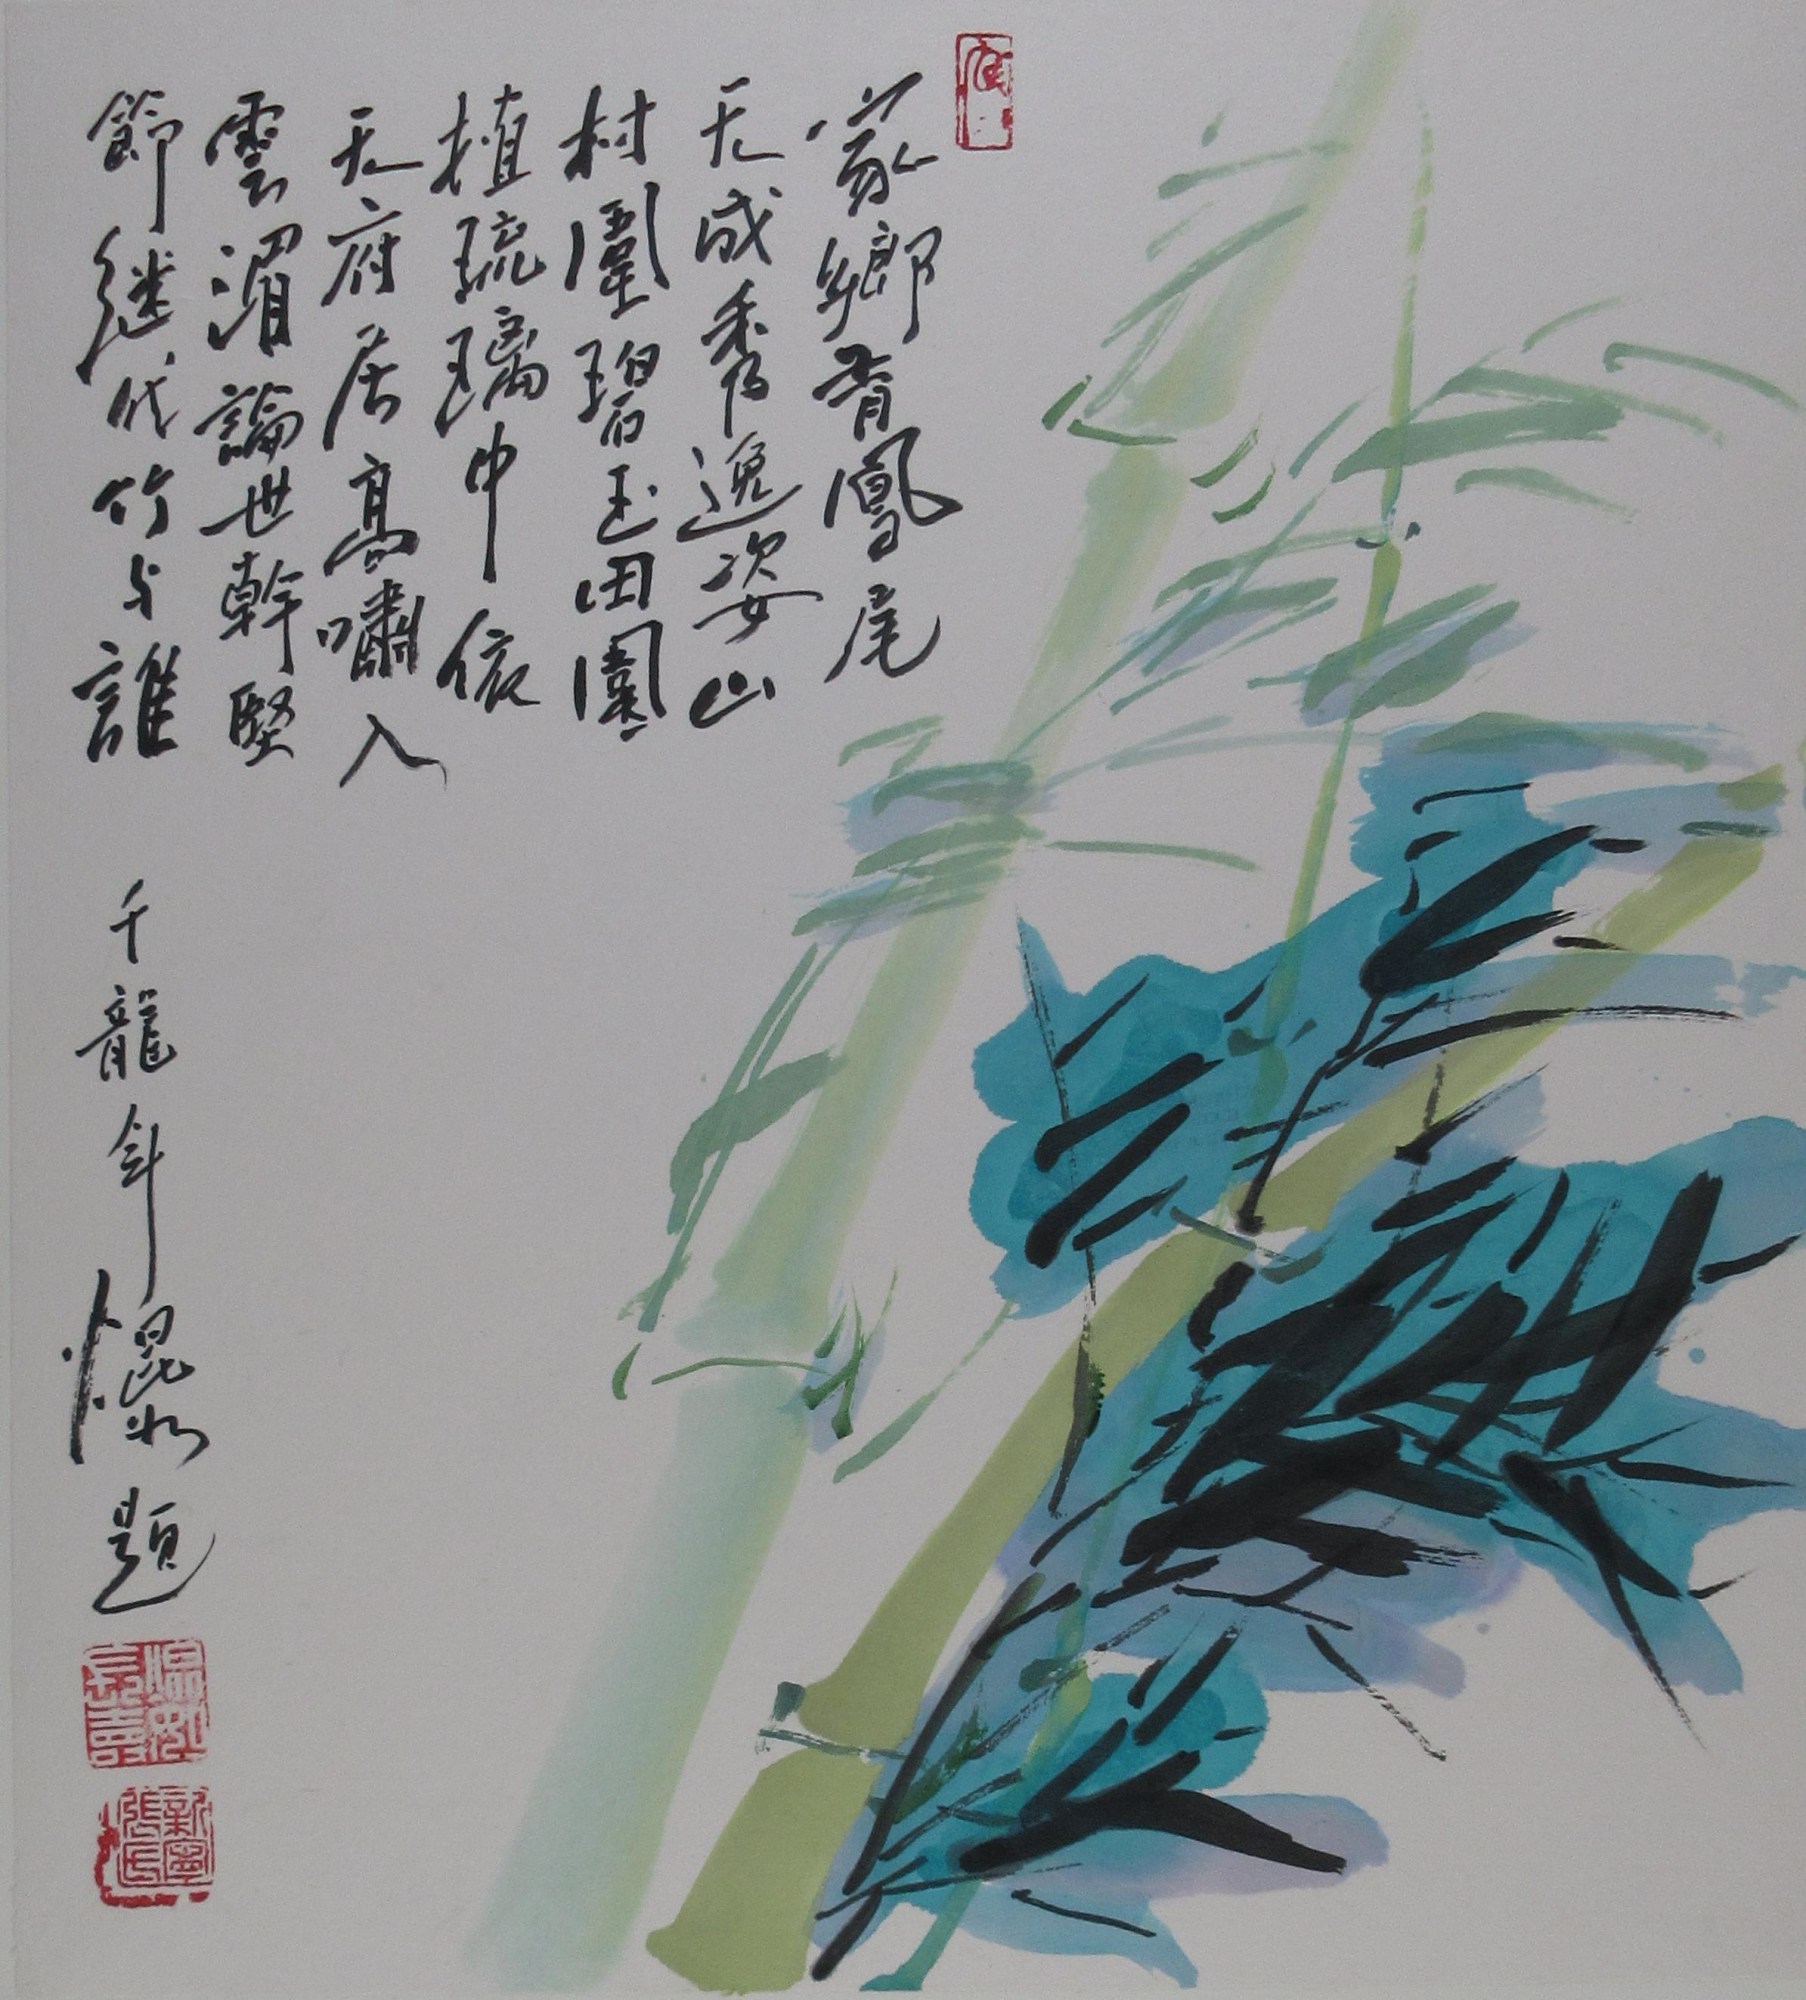 家鄉青鳳尾
天成秀逸姿山
村圍碧玉田園
植琉璃中依
天府居高嘯入
雲湄論世幹堅
節继代竹与誰
千龍年 焜 題
新寧